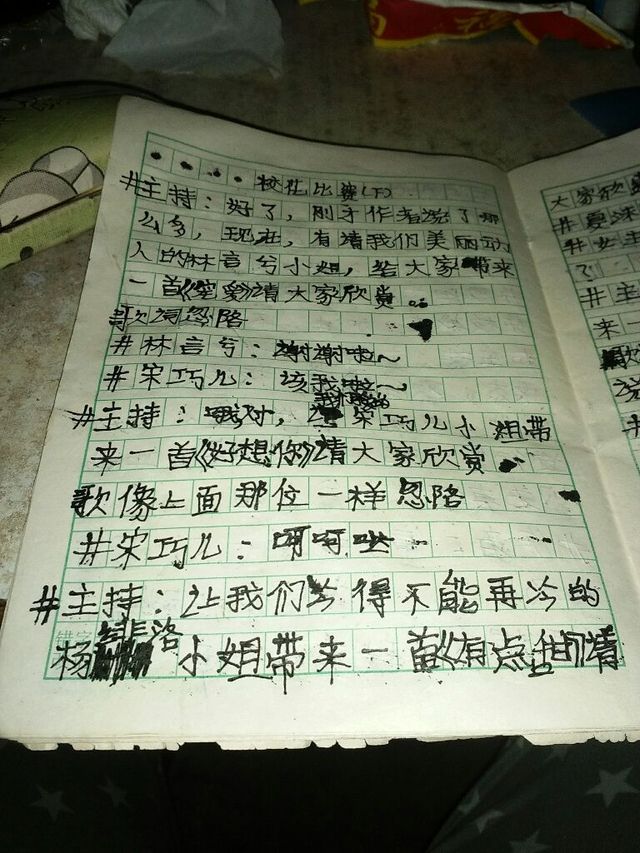 校花比赛(下)
#主持：好了，刚才作者说了那
么多，现在，有请我们美丽动
人的林言兮小姐，给大家带来
一首《空爱》请大家欣赏
歌词忽略
#林言兮：谢谢啦~
#宋巧儿：该我啦~
#主持：对，宋巧儿小姐带
来一首《好想你》请大家欣赏
歌像上面那位一样忽略
#宋巧儿：呵呵哒
#主持：让我们冷得不能再冷的
杨洛小姐带来一首《有点甜》请
大家欣
#夏沫
#主
了
#主
来一